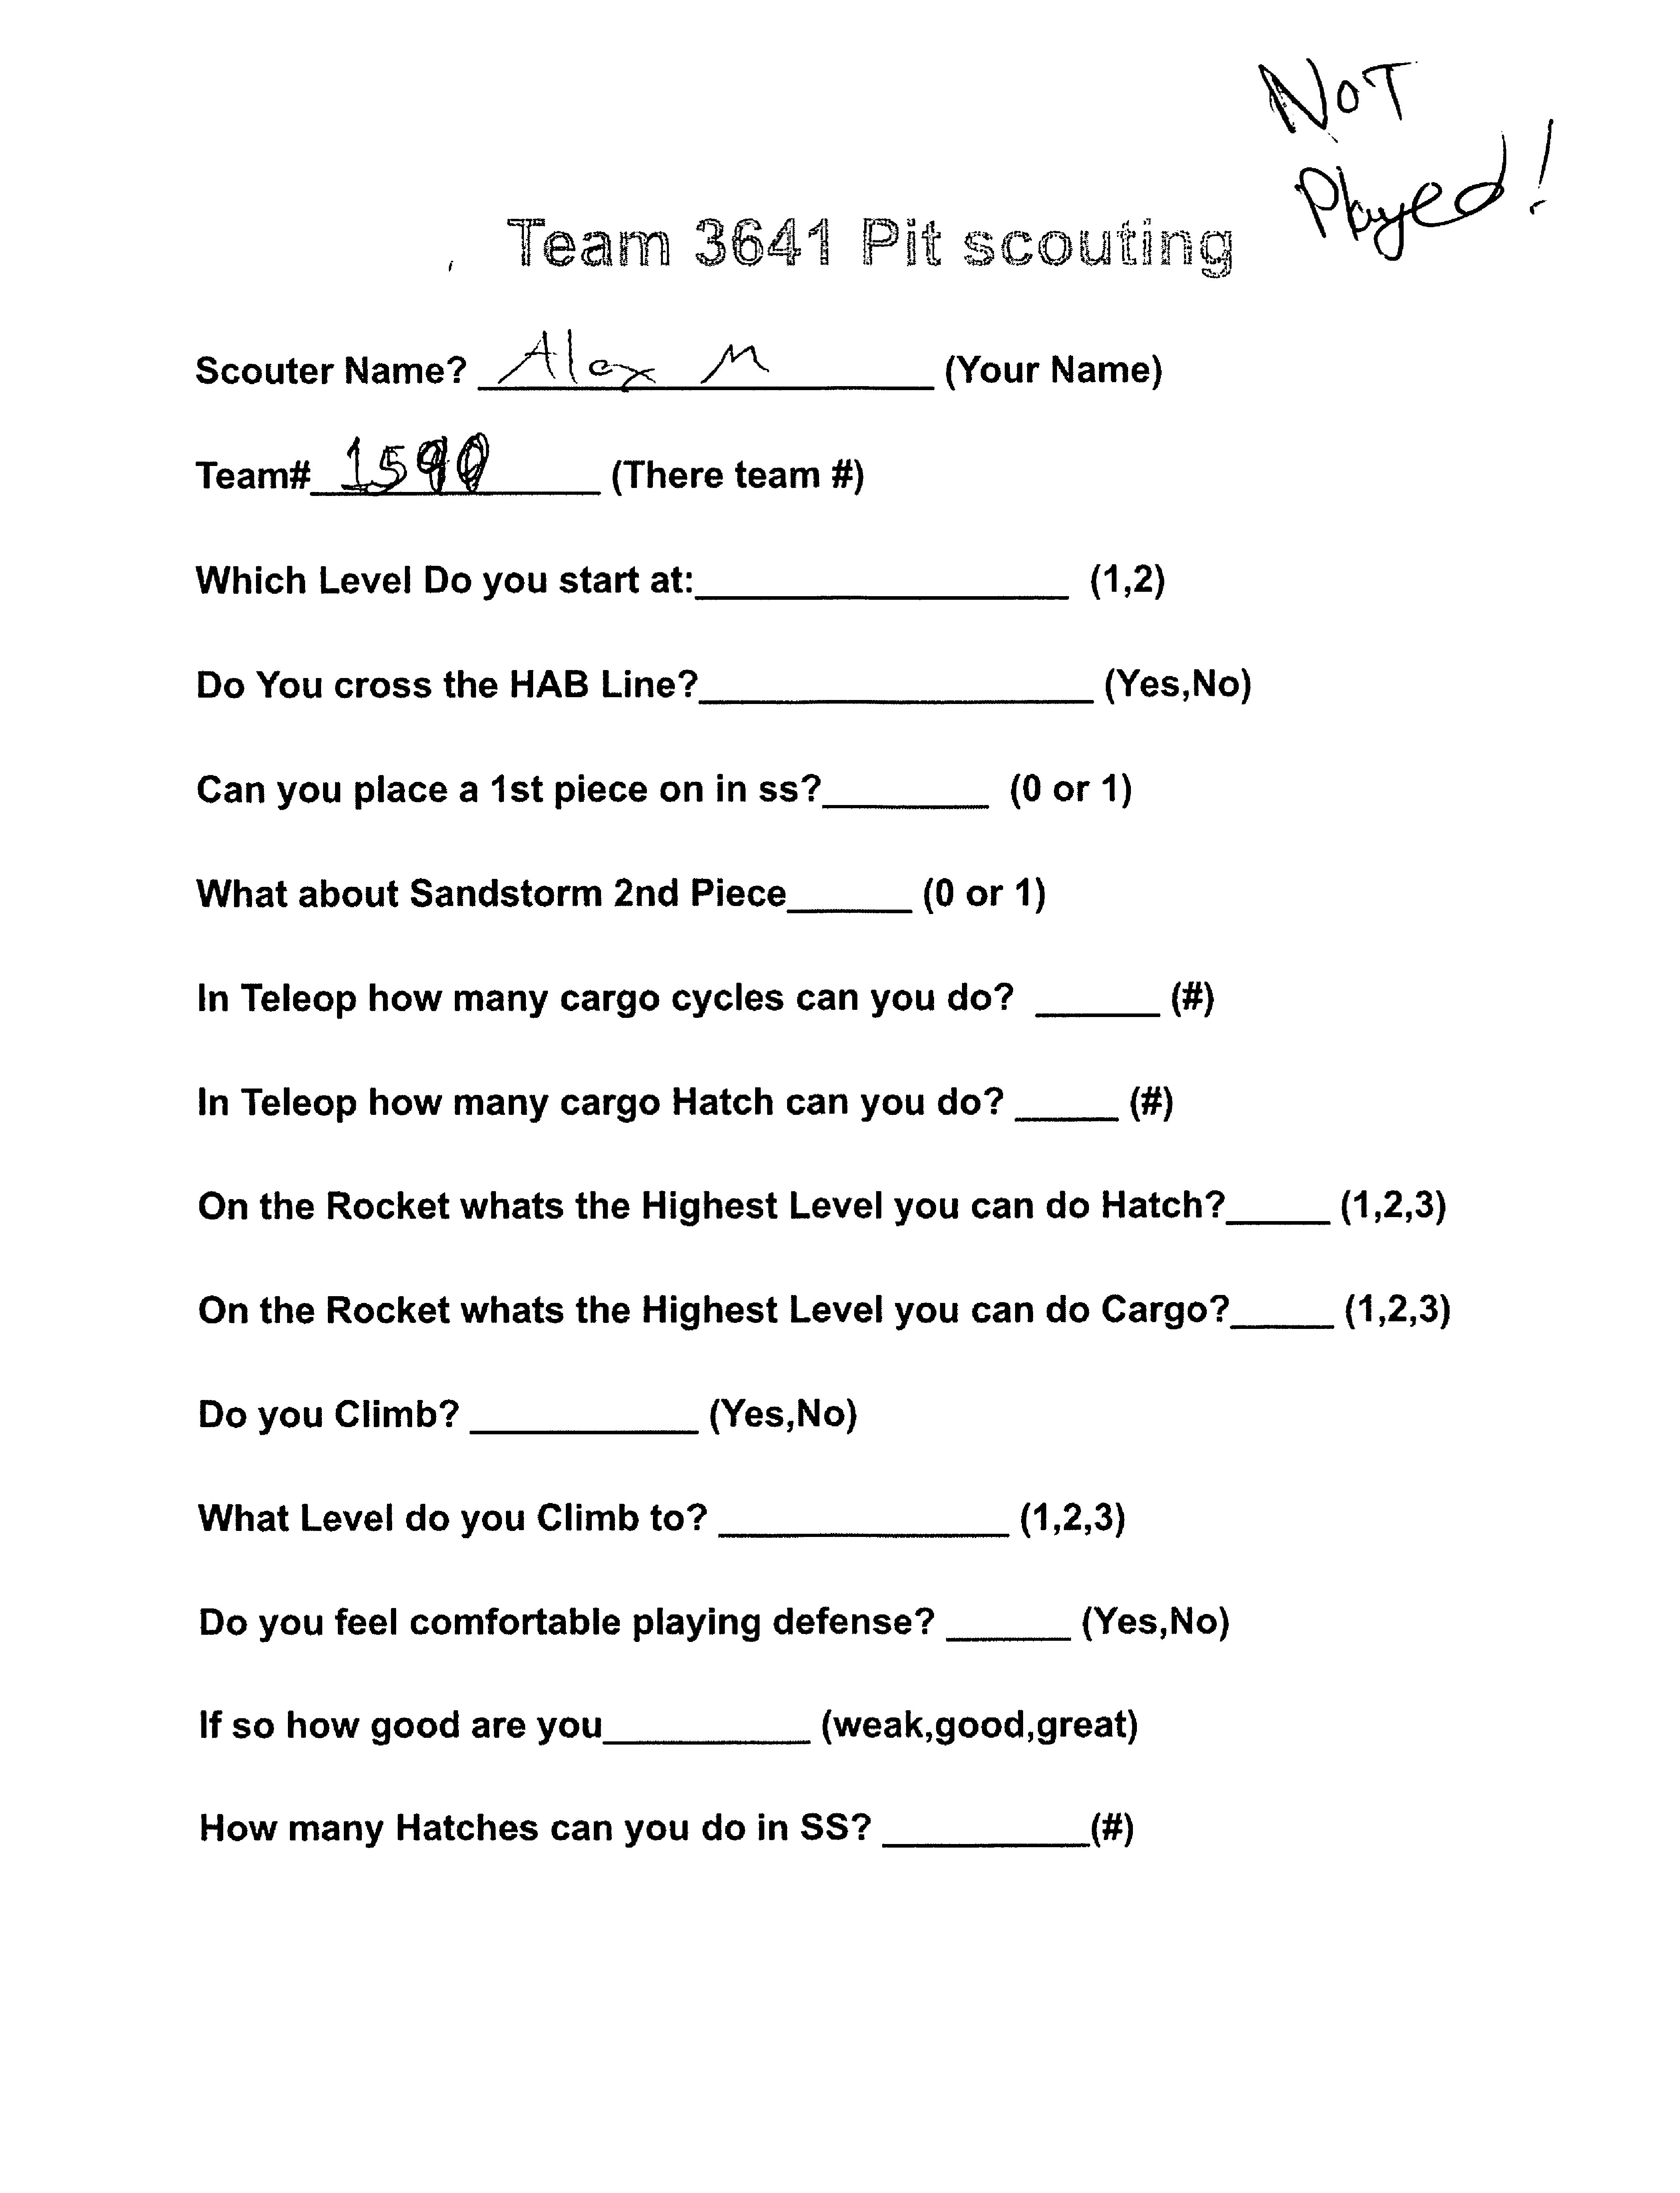 NOT
Played!
Team 3641 Pit scouting
Scouter Name? Alex M (Your Name)
Team# (There team #)
Which Level Do you start at:__________________ (1,2)
Do You cross the HAB Line?___________________ (Yes,No)
Can you place a 1st piece on in ss?________ (0 or 1)
What about Sandstorm 2nd Piece______ (0 or 1)
In Teleop how many cargo cycles can you do? ______ (#)
In Teleop how many cargo Hatch can you do? _____ (#)
On the Rocket whats the Highest Level you can do Hatch?_____ (1,2,3)
On the Rocket whats the Highest Level you can do Cargo?_____ (1,2,3)
Do you Climb? ___________ (Yes,No)
What Level do you Climb to? ______________ (1,2,3)
Do you feel comfortable playing defense? ______ (Yes,No)
If so how good are you__________ (weak,good,great)
How many Hatches can you do in SS? __________(#)